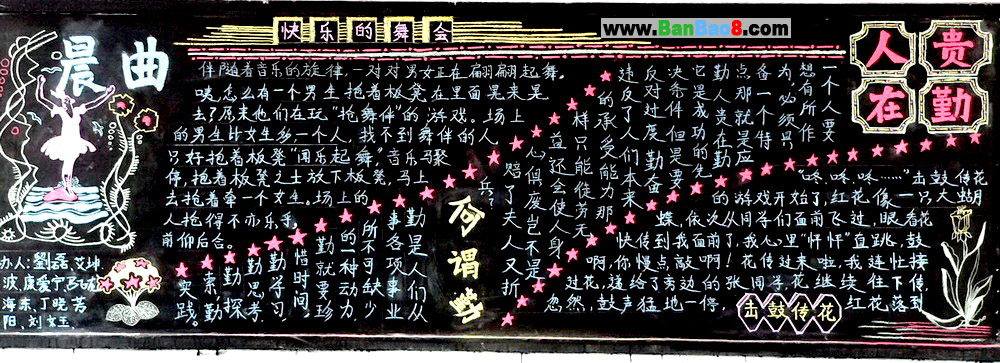 www.BanBao8.com
晨曲
快乐的舞会
伴随着音乐的旋律,一对对男女正在翩翩起舞。
咦,怎么有一个男生抱着板凳在里面晃来晃
去?原来他们在玩“抢舞伴”的游戏。场上
的男生比女生多一个人,找不到舞伴的人
只好抱着板凳“闻乐起舞”音乐马聚
停,抱着板凳之士放下板凳,马上
去抢着牵一个女生。场上的
人抢得不亦乐乎,
前仰后合。
办人:劉磊,艾坤
海东,丁晓芳
何谓勤
勤是人们从
事各项事业
所不可缺少
的一种动力
勤就要珍
惜时间,
勤学习,
勤思考,
勤探索,
实践。
人贵在勤
一个人要
想有所作
为,必须具
备一个特
点那就是应
勤,人贵在勤
它是成功的先
决条件但是要
反对过度勤奋
违反了人们本来
的承受能力那
样只能徒劳无
益还会使人身
心俱废岂不是
赔了夫人又折
兵。
“咚、咚、咚……”击鼓传花
的游戏开始了,红花像一只大蝴
蝶,依次从同学们面前飞过,眼看花
快传到我面前了,我心里“怦怦”直跳,鼓
啊,你慢点敲啊!花传过来啦,我连忙接
过花,递给了旁边的张同学,花继续往下传,
忽然,鼓声猛地一停,
红花落到
击鼓传花